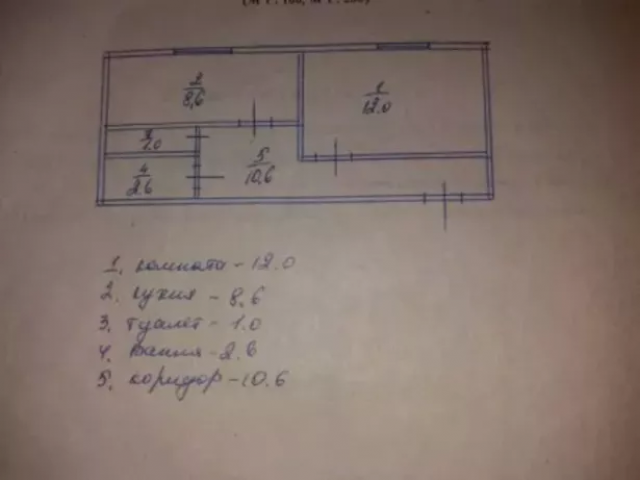 2
8,6
1
12.0
3
1.0
4
2.6
5
10.6
1. комната - 12.0
2. кухня - 8.6
3. туалет - 1.0
4. ванная - 2.6
5. коридор - 10.6